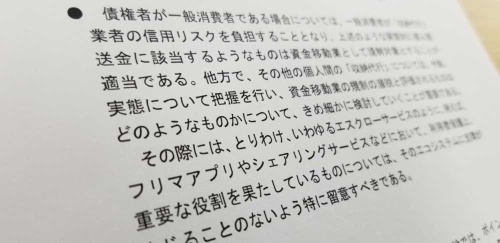 ● 債権者が一般消費者である場合については、一般消費者が「収納代行」
業者の信用リスクを負担することとなり、上述のような
送金に該当するようなものは資金移動業として規制対象とすることが
適当である。他方で、その他の個人間の「収納代行」については、
実態について把握を行い、資金移動業の規制の潜脱と評価されるものは
どのようなものかについて、きめ細かに検討していくことが重要である。
その際には、とりわけ、いわゆるエスクローサービスのように、例えば、
フリマアプリやシェアリングサービスなどにおいて、
重要な役割を果たしているものについては、そのエコシステムに
ことのないよう特に留意すべきである。